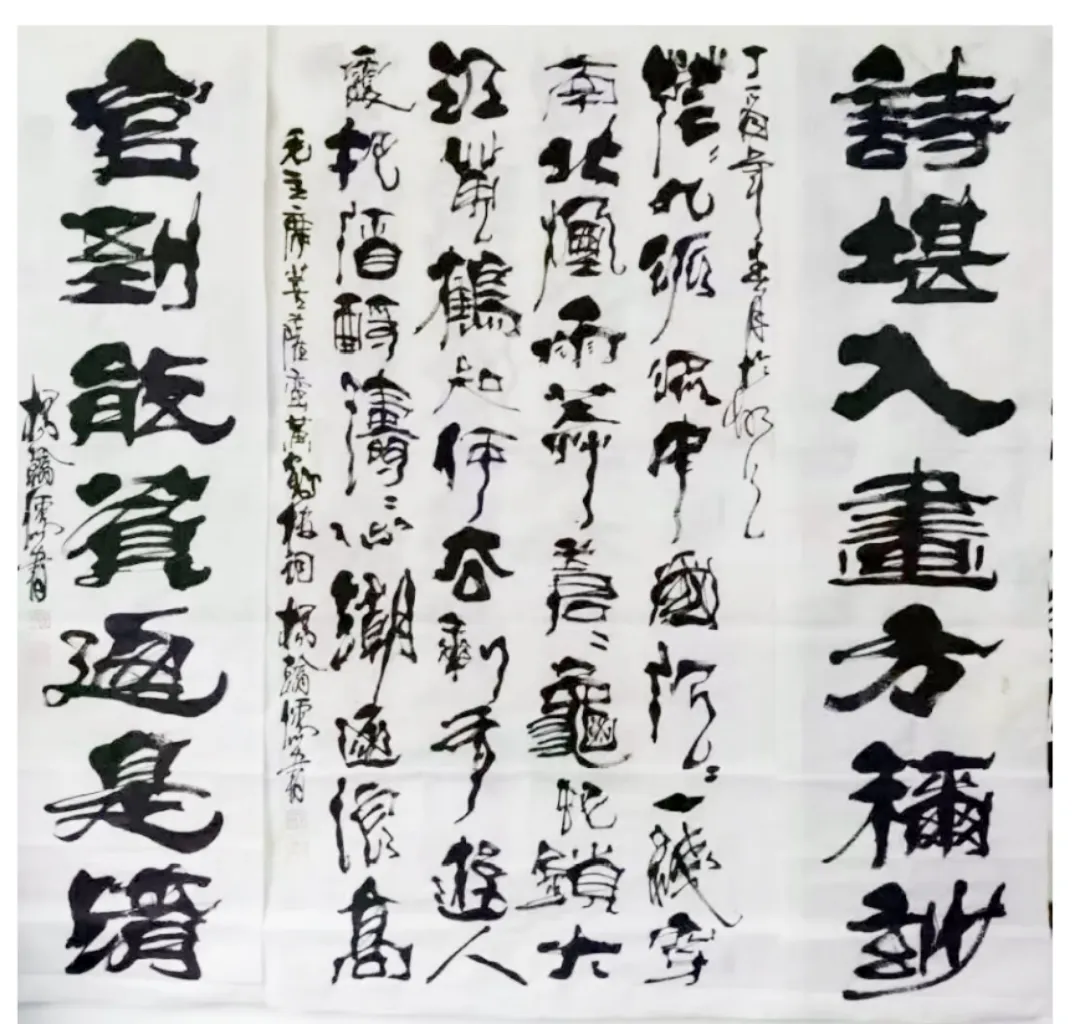 詩堪入畫方稱妙
丁酉年春月於
茫〻九派流中國沉〻一線穿
南北煙雨莽蒼〻龜蛇鎖大
江黃鶴知何去剩有遊人
處把酒酹滔〻心潮逐浪高
毛主席菩薩蠻黃鶴樓詞 楊翰儒書
官到能貧迺是清
楊翰儒書